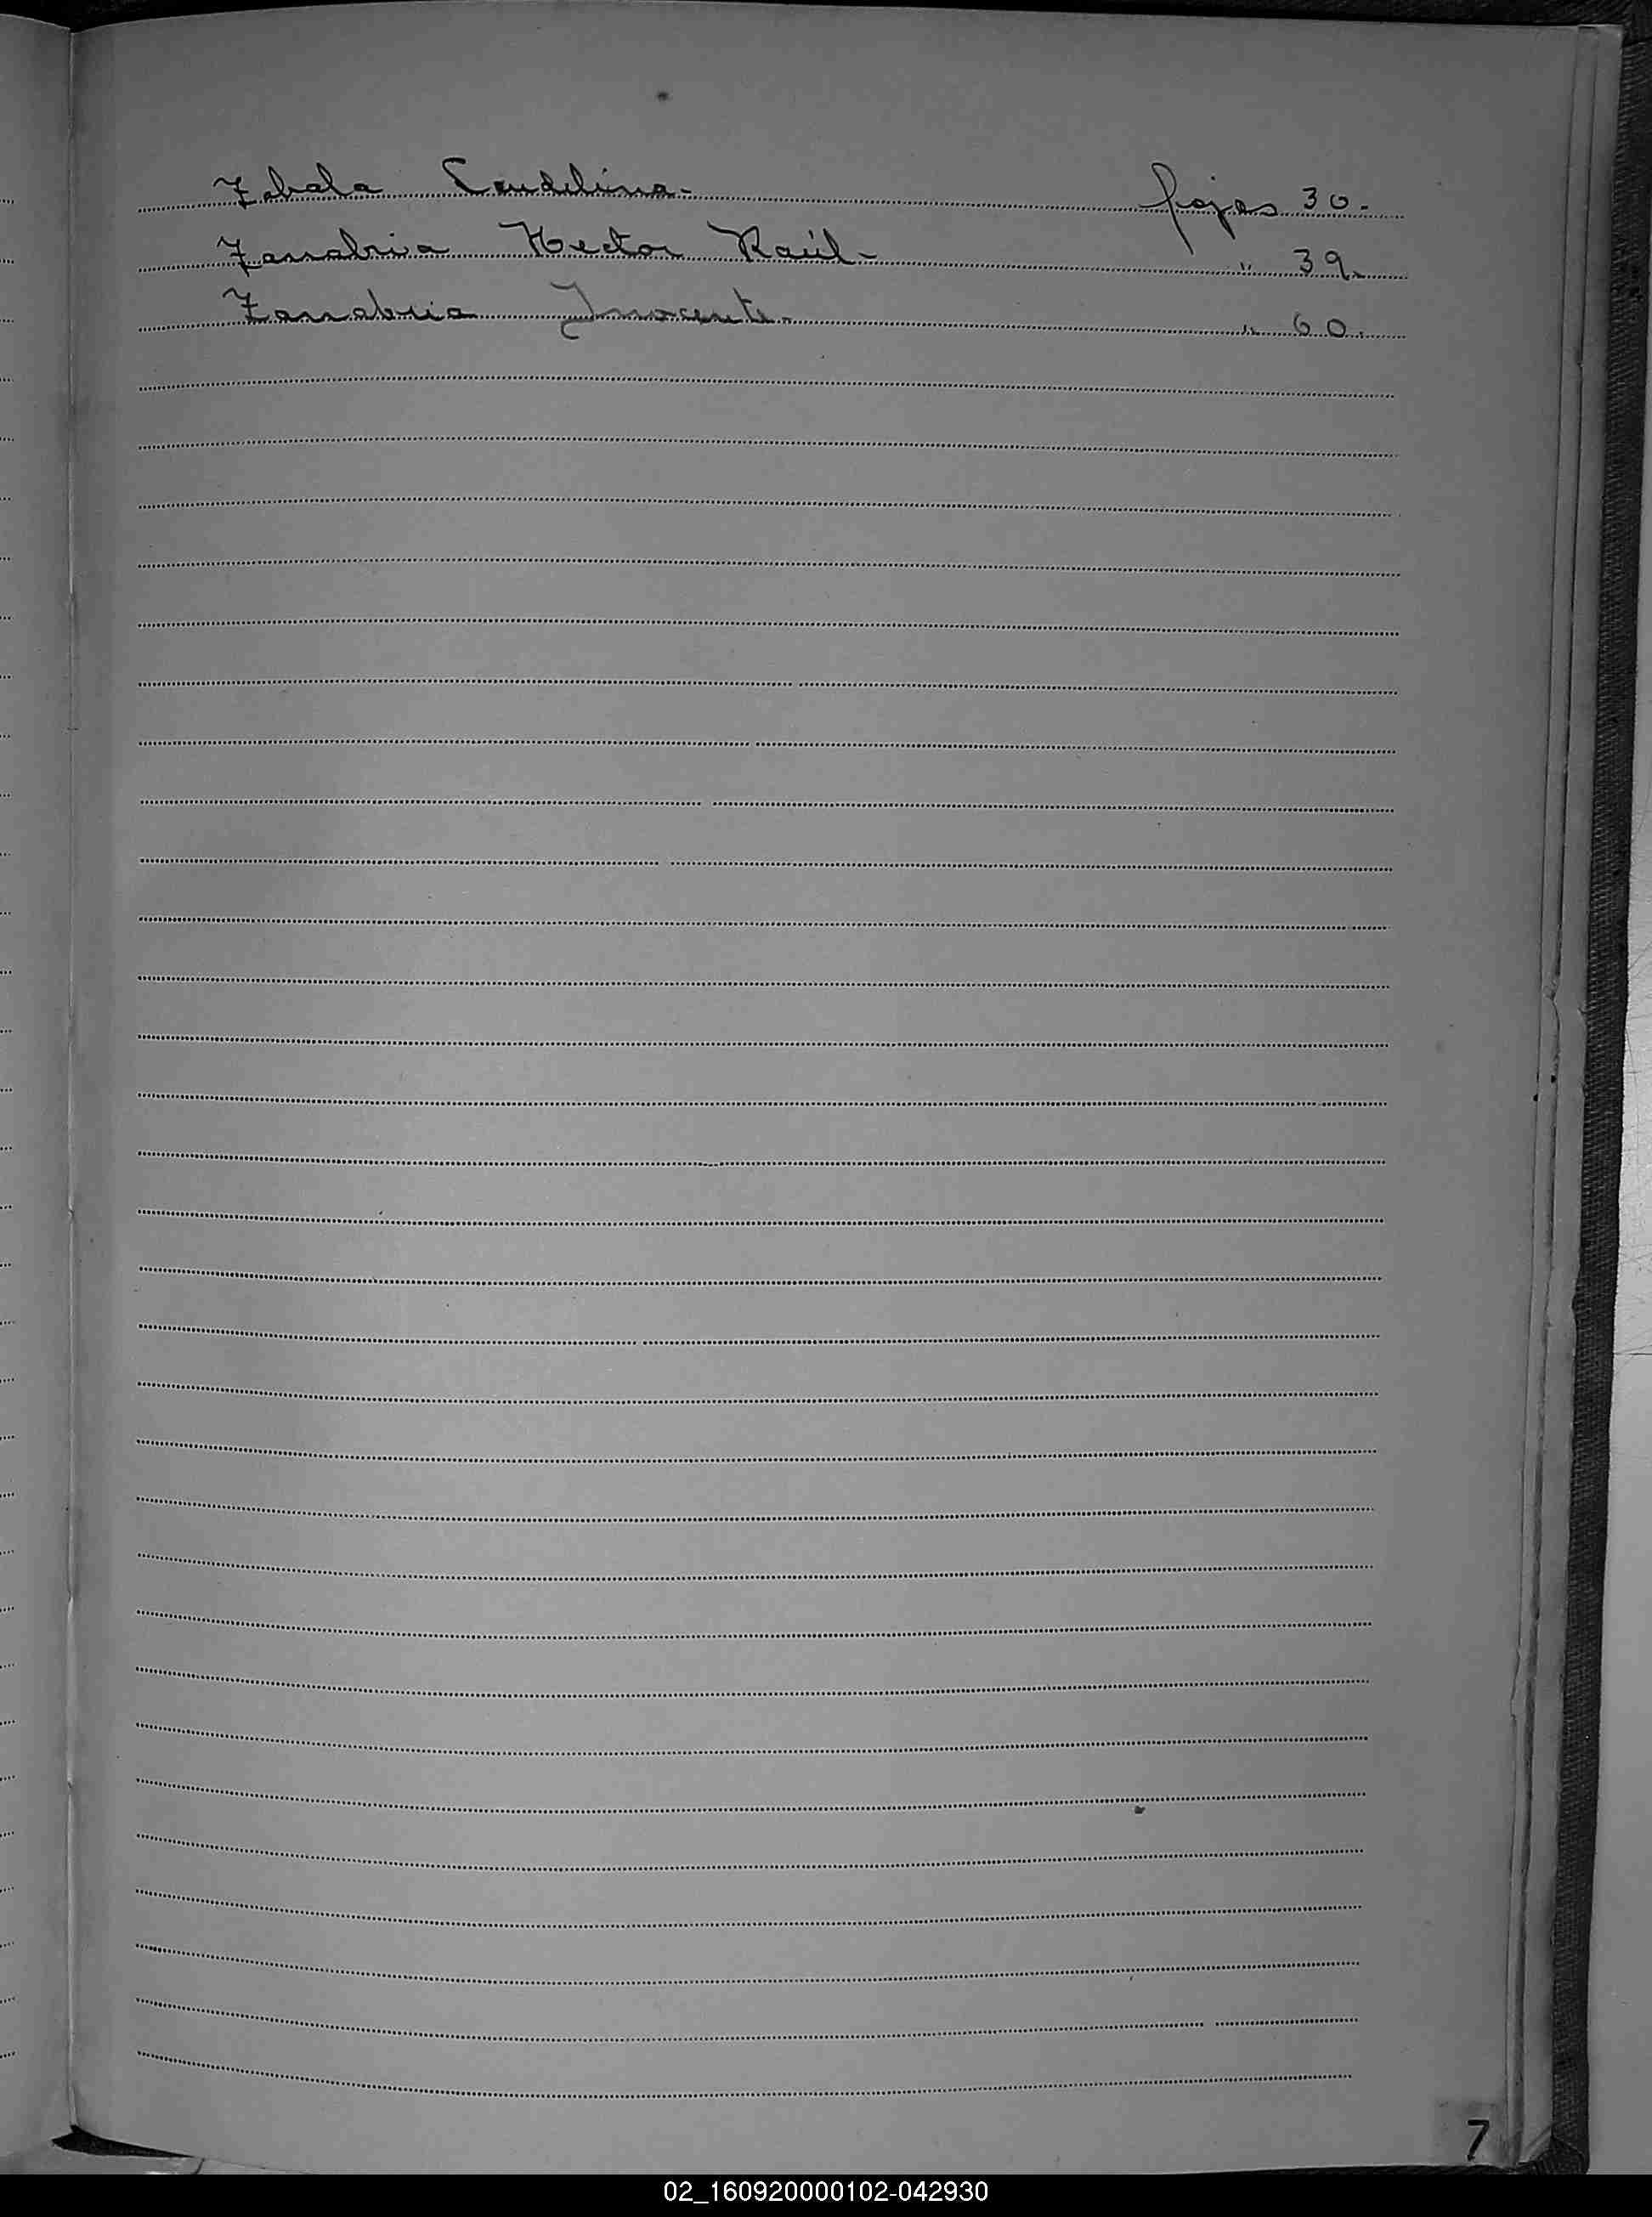 Zabala Candelina- fojas 30.-
Zanabria Hector Raúl- " 39.-
Zanabria Inocente.- " 60.-
7
02_160920000102-042930